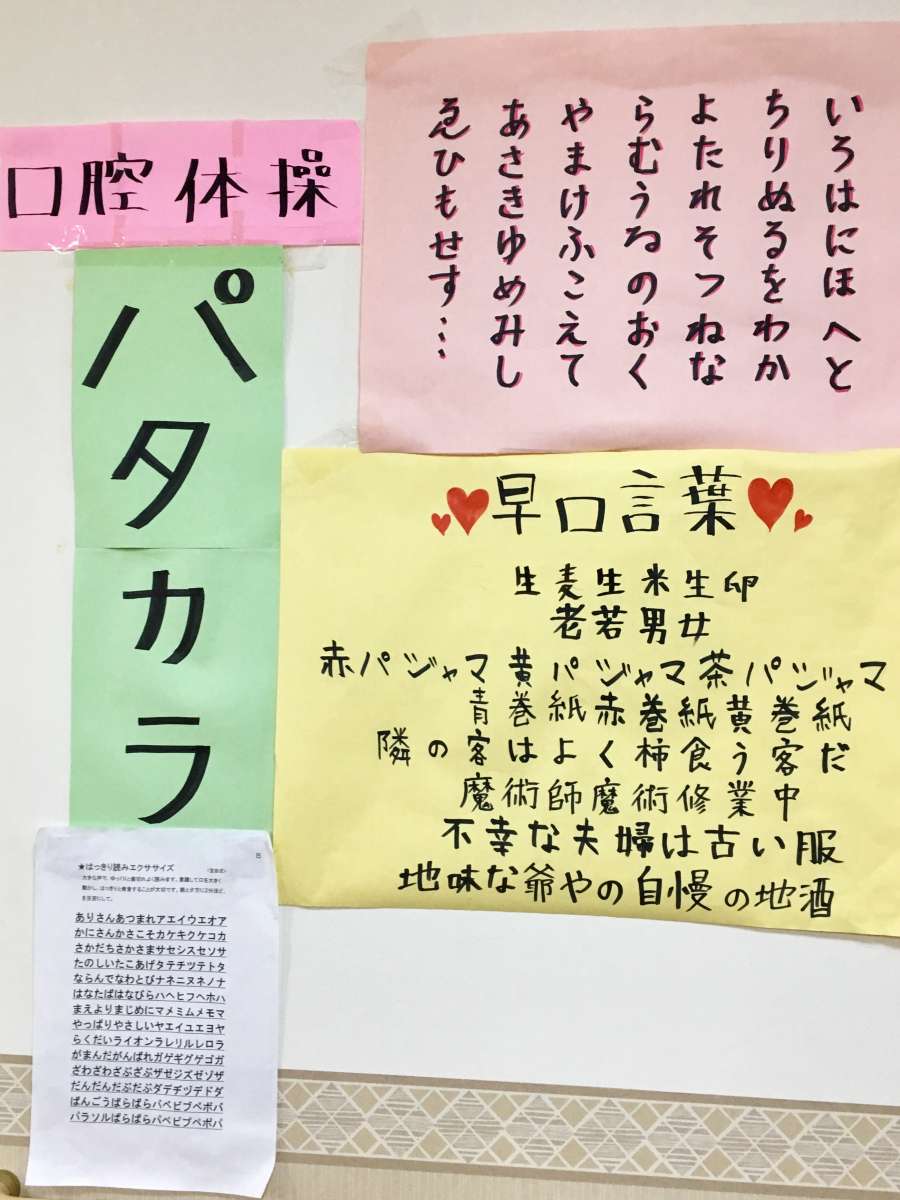 口腔体操
パタカラ
いろはにほへと
ちりぬるをわか
よたれそつねな
らむうゐのおく
やまけふこえて
あさきゆめみし
ゑひもせす…
早口言葉
生麦生米生卵
老若男女
赤パジャマ黄パジャマ茶パジャマ
青巻紙赤巻紙黄巻紙
隣の客はよく柿食う客だ
魔術師魔術修業中
不幸な夫婦は古い服
地味な爺やの自慢の地酒
★はっきり読みエクササイズ
大きな声で、ゆっくりと歯切れよく読みます。意識して口を大きく
動かし、はっきりと発音することが大切です。朝と夕方に2分ほど、
を目安にして。
ありさんあつまれアエイウエオア
かにさんかさこそカケキクケコカ
さかだちさかさまサセシスセソサ
たのしいたこあげタテチツテトタ
ならんでなわとびナネニヌネノナ
はなたばはなびらハヘヒフヘホハ
まえよりまじめにマメミムメモマ
やっぱりやさしいヤエイユエヨヤ
らくだいライオンラレリルレロラ
がまんだがんばれガゲギグゲゴガ
ざわざわざぶざぶザゼジズゼゾザ
だんだんだぶだぶダデヂヅデドダ
ばんごうばらばらバベビブベボバ
パラソルぱらぱらパペピプペポパ